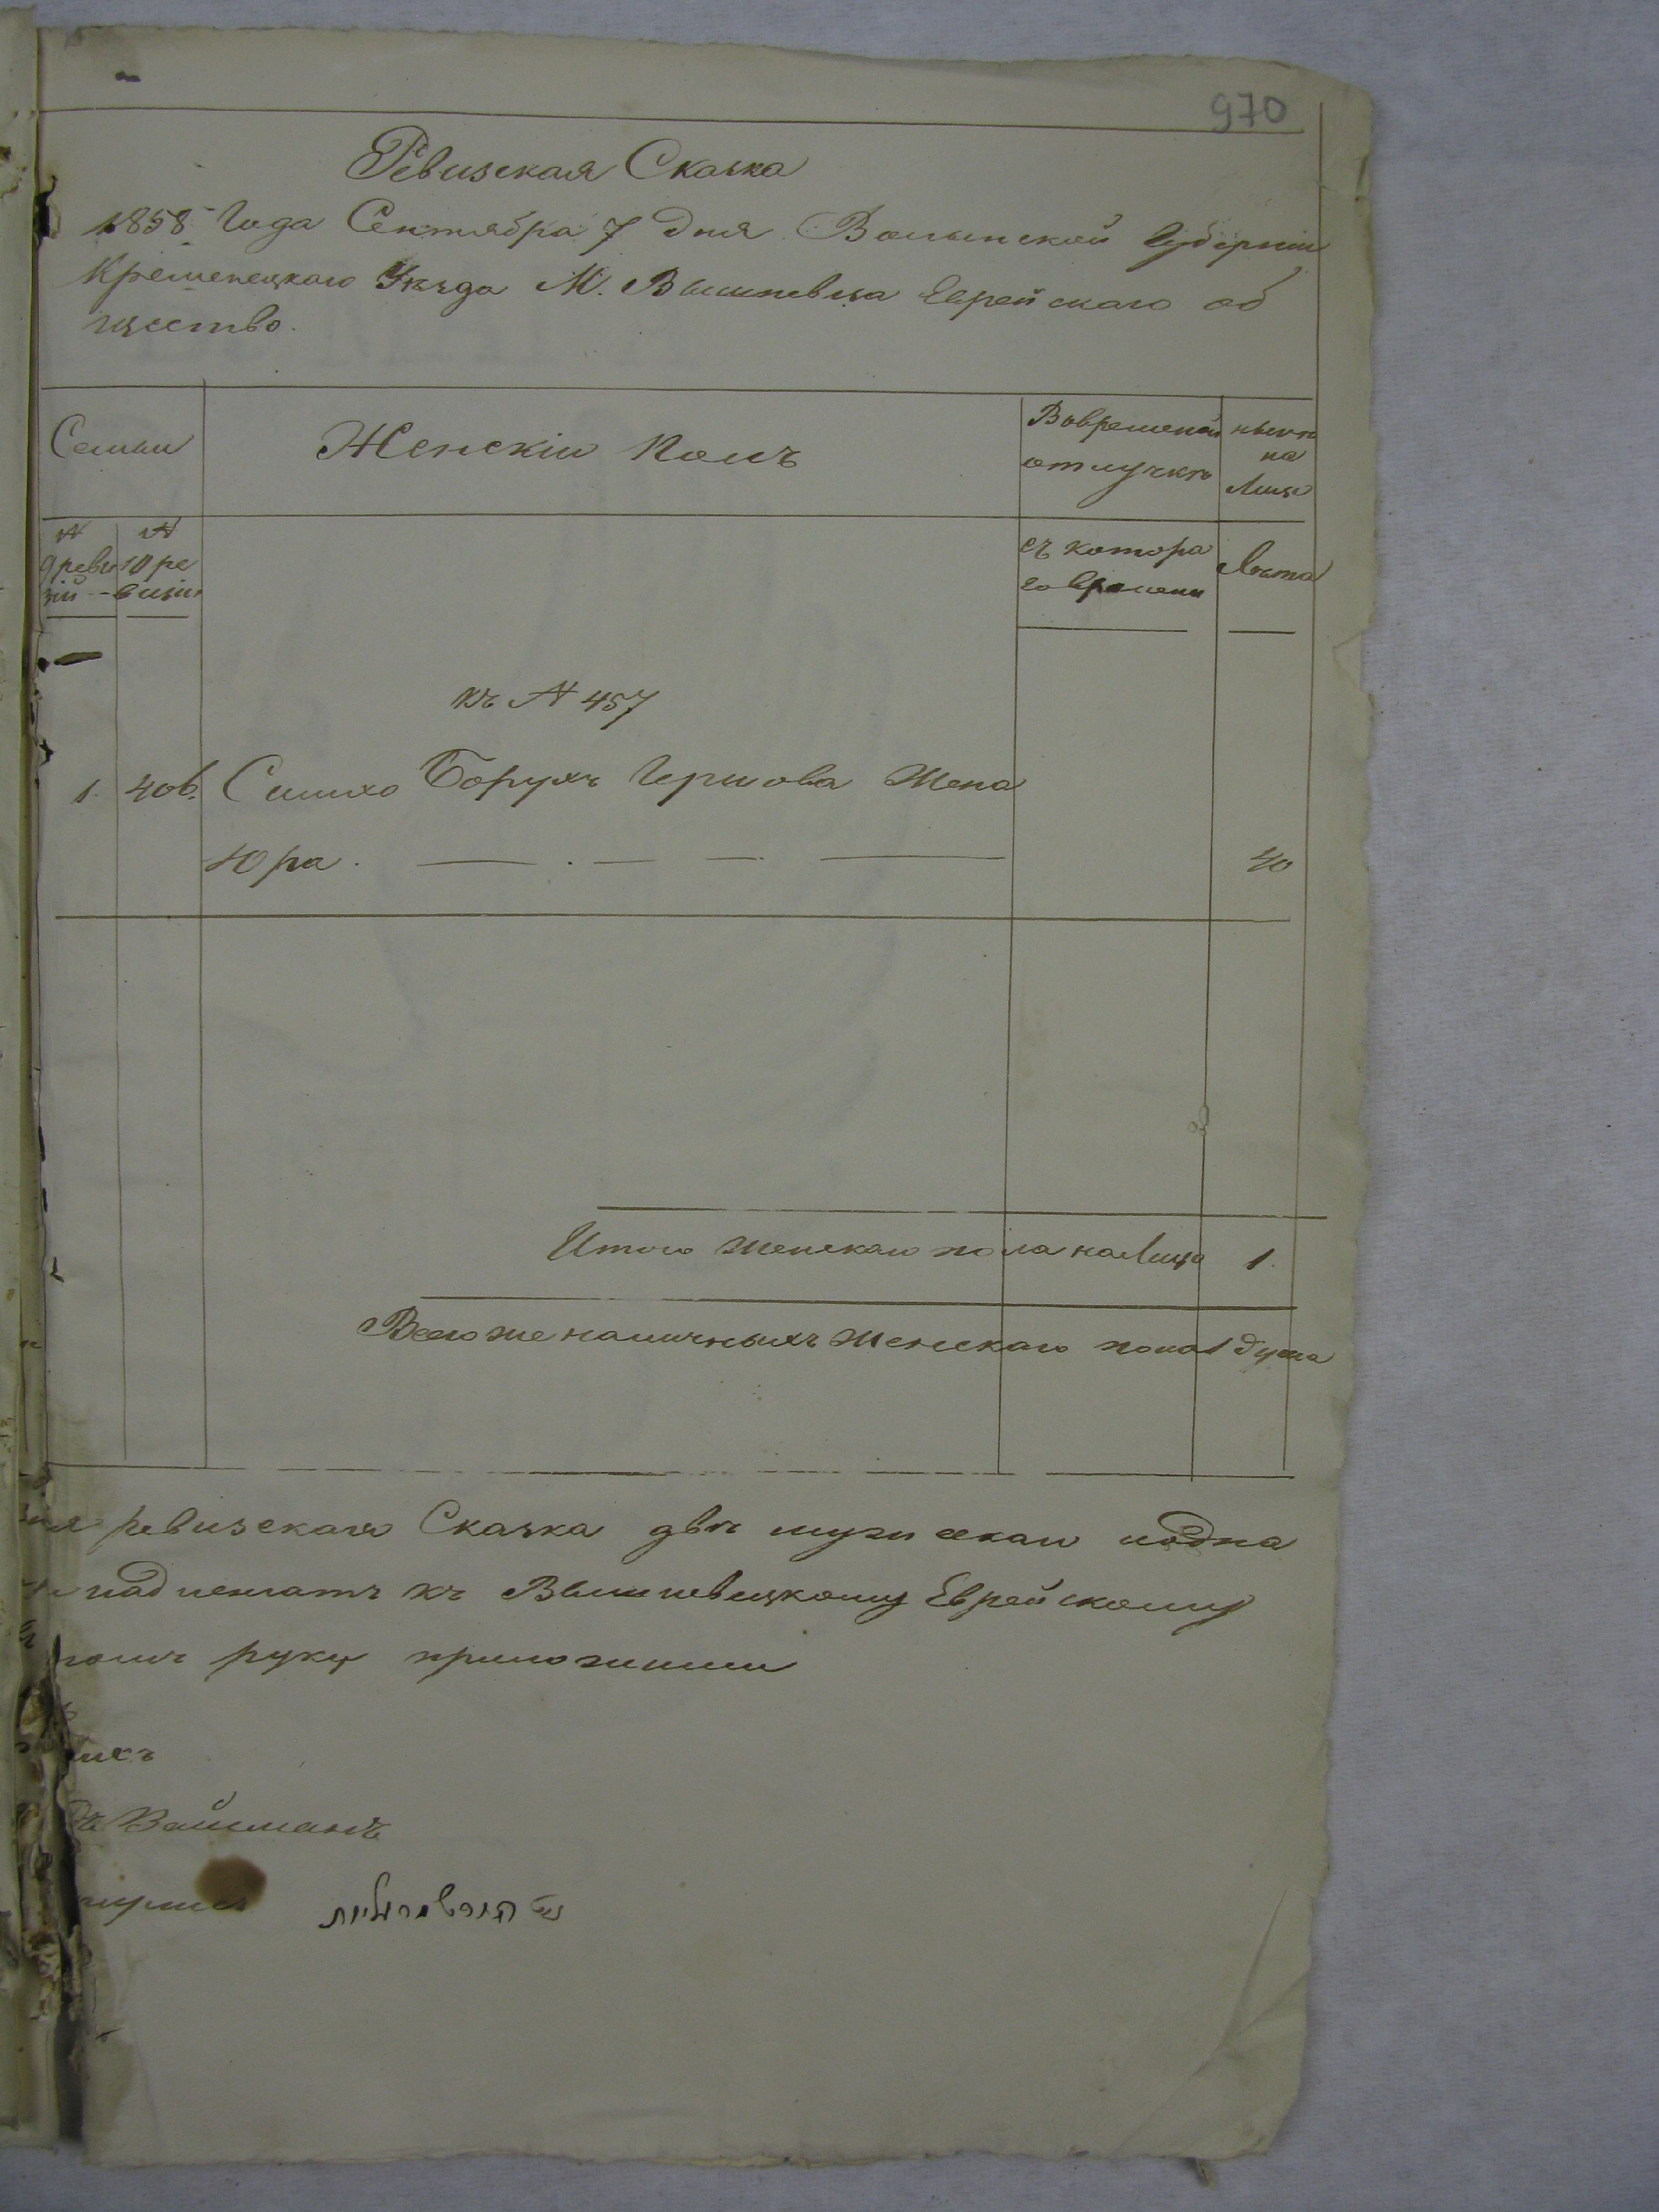 970
Ревизская Сказка
1858 Года Сентября 7 дня Волынской Губернии
Кременецкаго Уѣзда М. Вишневца Еврейскаго об
щество.
Семьи
Женскiй Полъ
Вовременной отлучкѣ
нынѣ на Лицо
№ 9 реви зiи
№ 10 ре визiи
съ котора го времени
Лѣта
къ № 457
1. 406. Симхо Борухъ Гершова Жена
Юра. 40
Итого женскаго пола налицо 1.
Всего же наличныхъ женскаго пола 1 душа
ревизская Сказка двѣ мужескаго и одна
къ Вишневецкому Еврейскому
руку приложили
Вайсманъ